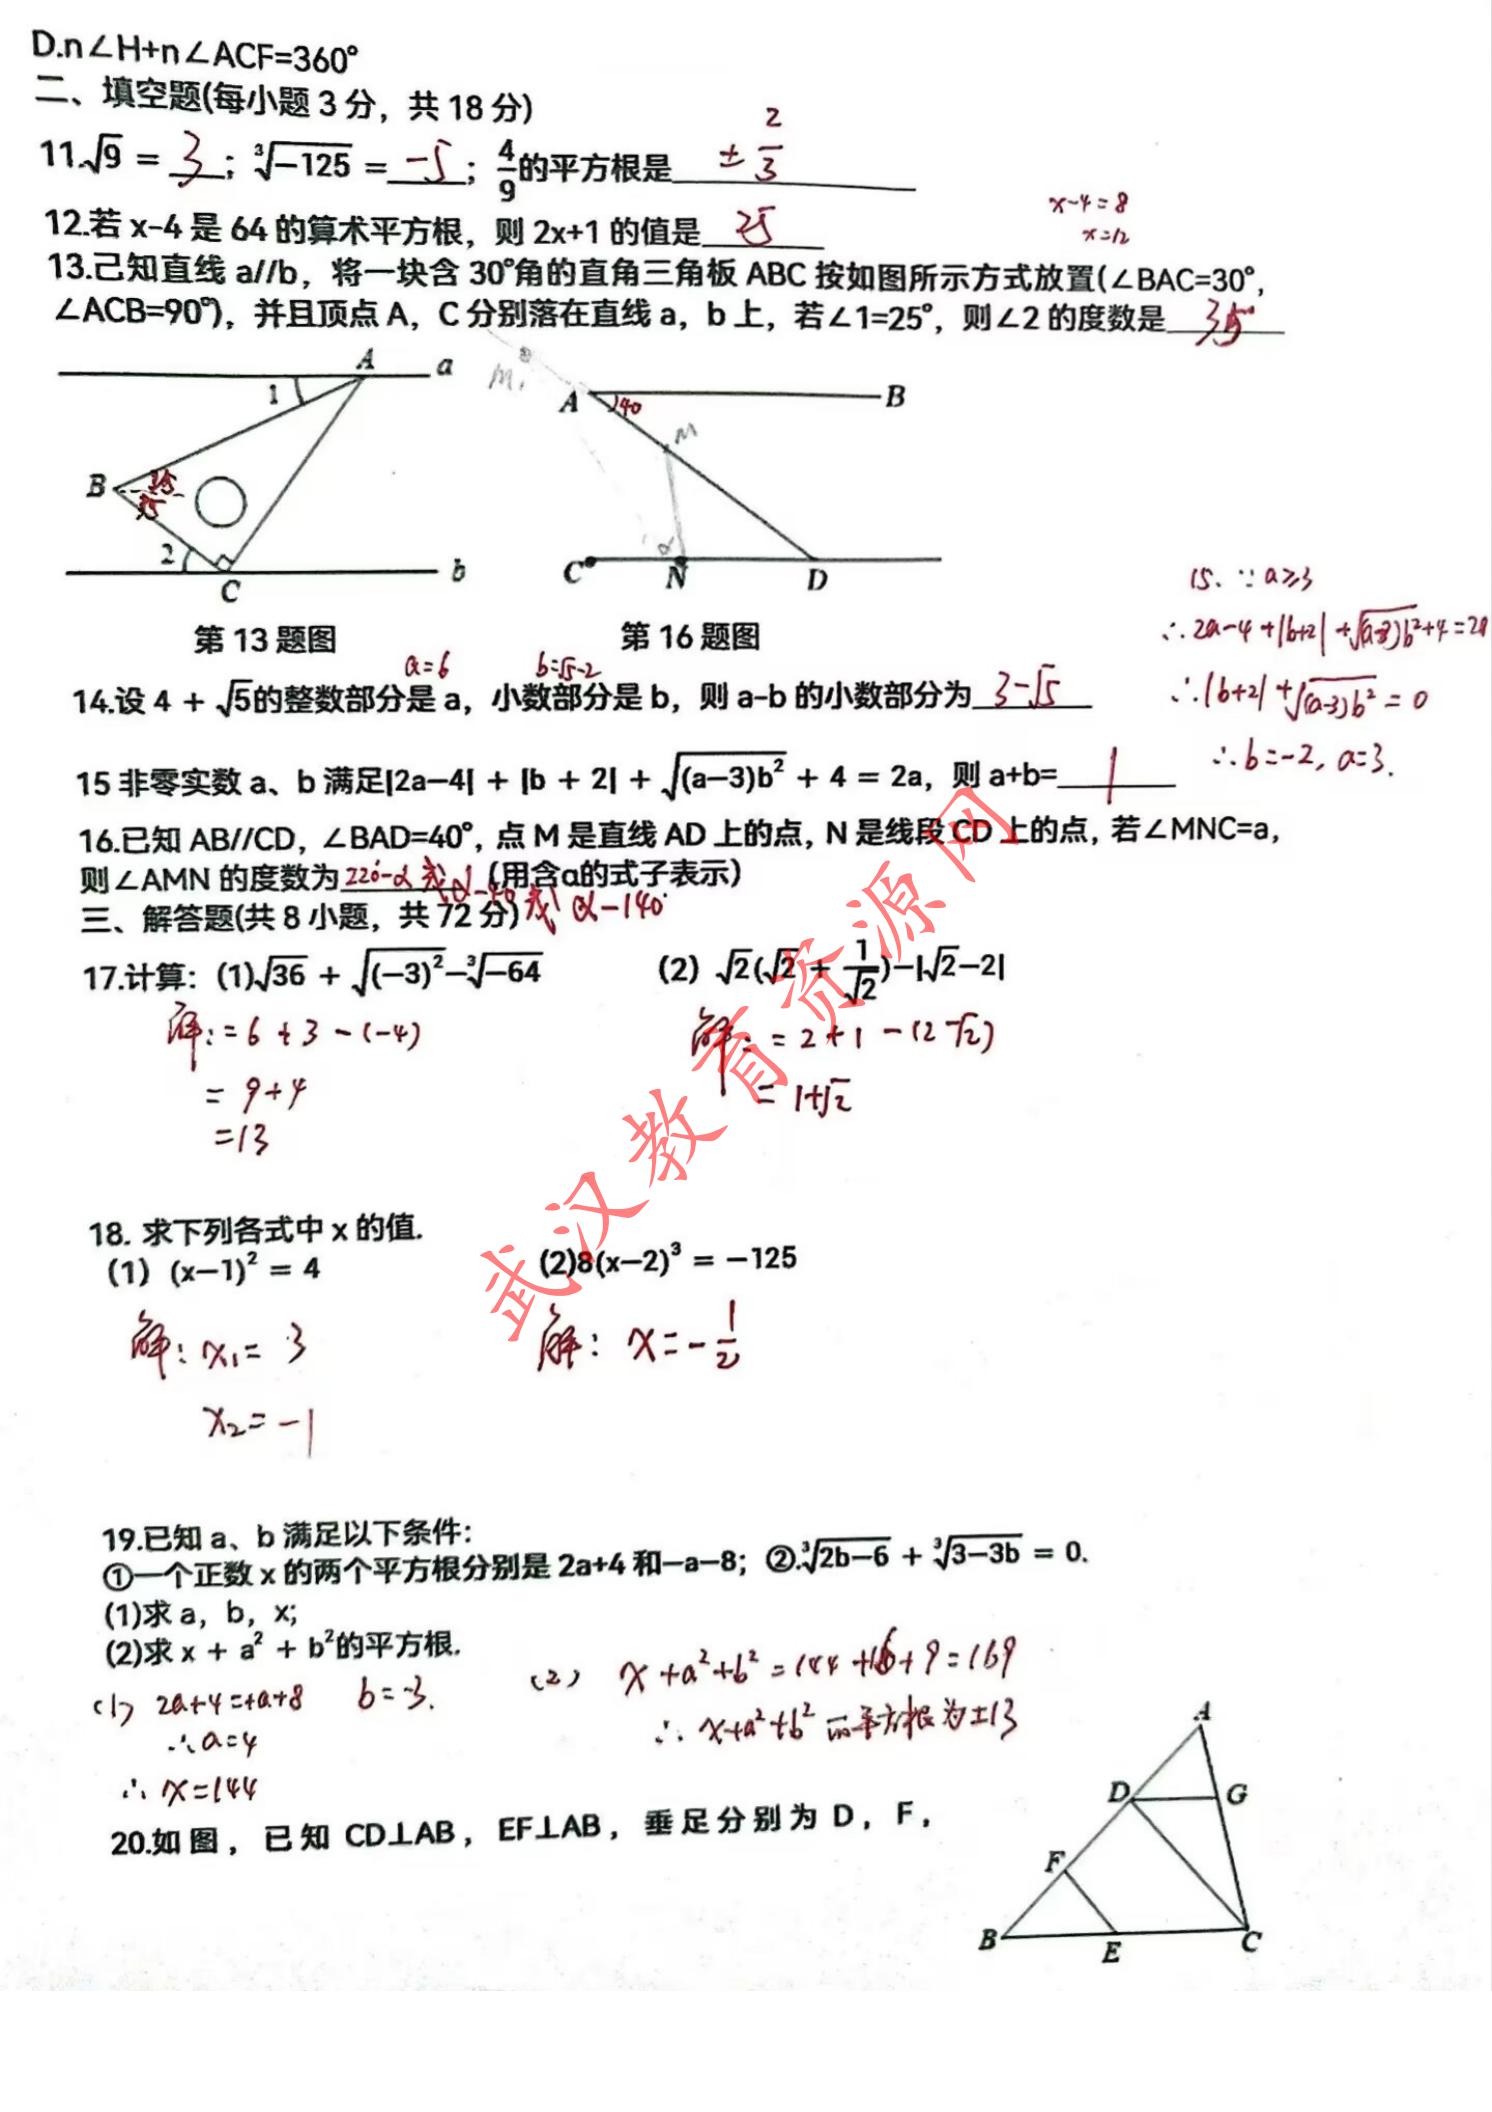 D.n∠H+n∠ACF=360°
二、填空题(每小题3分，共18分)
11.√9 = 3 ; ∛−125 = −5 ; 4/9的平方根是 ± 2/3
x−4=8
x=12
12.若 x−4 是 64 的算术平方根，则 2x+1 的值是 25
13.己知直线 a//b，将一块含 30°角的直角三角板 ABC 按如图所示方式放置(∠BAC=30°,
∠ACB=90°)，并且顶点 A，C 分别落在直线 a，b 上，若∠1=25°，则∠2 的度数是 35°
A a
1
B
2
C b
M₁
A B
40
M
α
C N D
第 13 题图
第 16 题图
15. ∵ a≥3
∴ 2a−4+|b+2|+√(a−3)b²+4=2a
∴ |b+2|+√(a−3)b² = 0
∴ b=−2, a=3.
a=6 b=√5−2
14.设 4 + √5的整数部分是 a，小数部分是 b，则 a−b 的小数部分为 3−√5
15 非零实数 a、b 满足|2a−4| + |b + 2| + √(a−3)b² + 4 = 2a，则 a+b= 1
16.已知 AB//CD，∠BAD=40°，点 M 是直线 AD 上的点，N 是线段 CD 上的点，若∠MNC=a，
则∠AMN 的度数为 220−α 或 α−40 (用含α的式子表示)
或 α−140
三、解答题(共 8 小题，共 72 分)
17.计算：(1)√36 + √(−3)²−∛−64 (2) √2(√2 + 1/√2)−|√2−2|
解：= 6 + 3 − (−4) 解：= 2 + 1 − (2−√2)
= 9+4 = 1+√2
=13
18. 求下列各式中 x 的值.
(1) (x−1)² = 4 (2)8(x−2)³ = −125
解：x₁= 3 解：x=−1/2
x₂= −1
19.已知 a、b 满足以下条件：
①一个正数 x 的两个平方根分别是 2a+4 和−a−8；②.∛2b−6 + ∛3−3b = 0.
(1)求 a，b，x;
(2)求 x + a² + b²的平方根.
(1) 2a+4=+a+8 b=−3.
∴a=4
∴ x=144
(2) x+a²+b²=144+16+9=169
∴ x+a²+b² 的平方根为±13
20.如图，已知 CD⊥AB，EF⊥AB，垂足分别为 D，F，
A
D G
F
B E C
武汉教育资源网